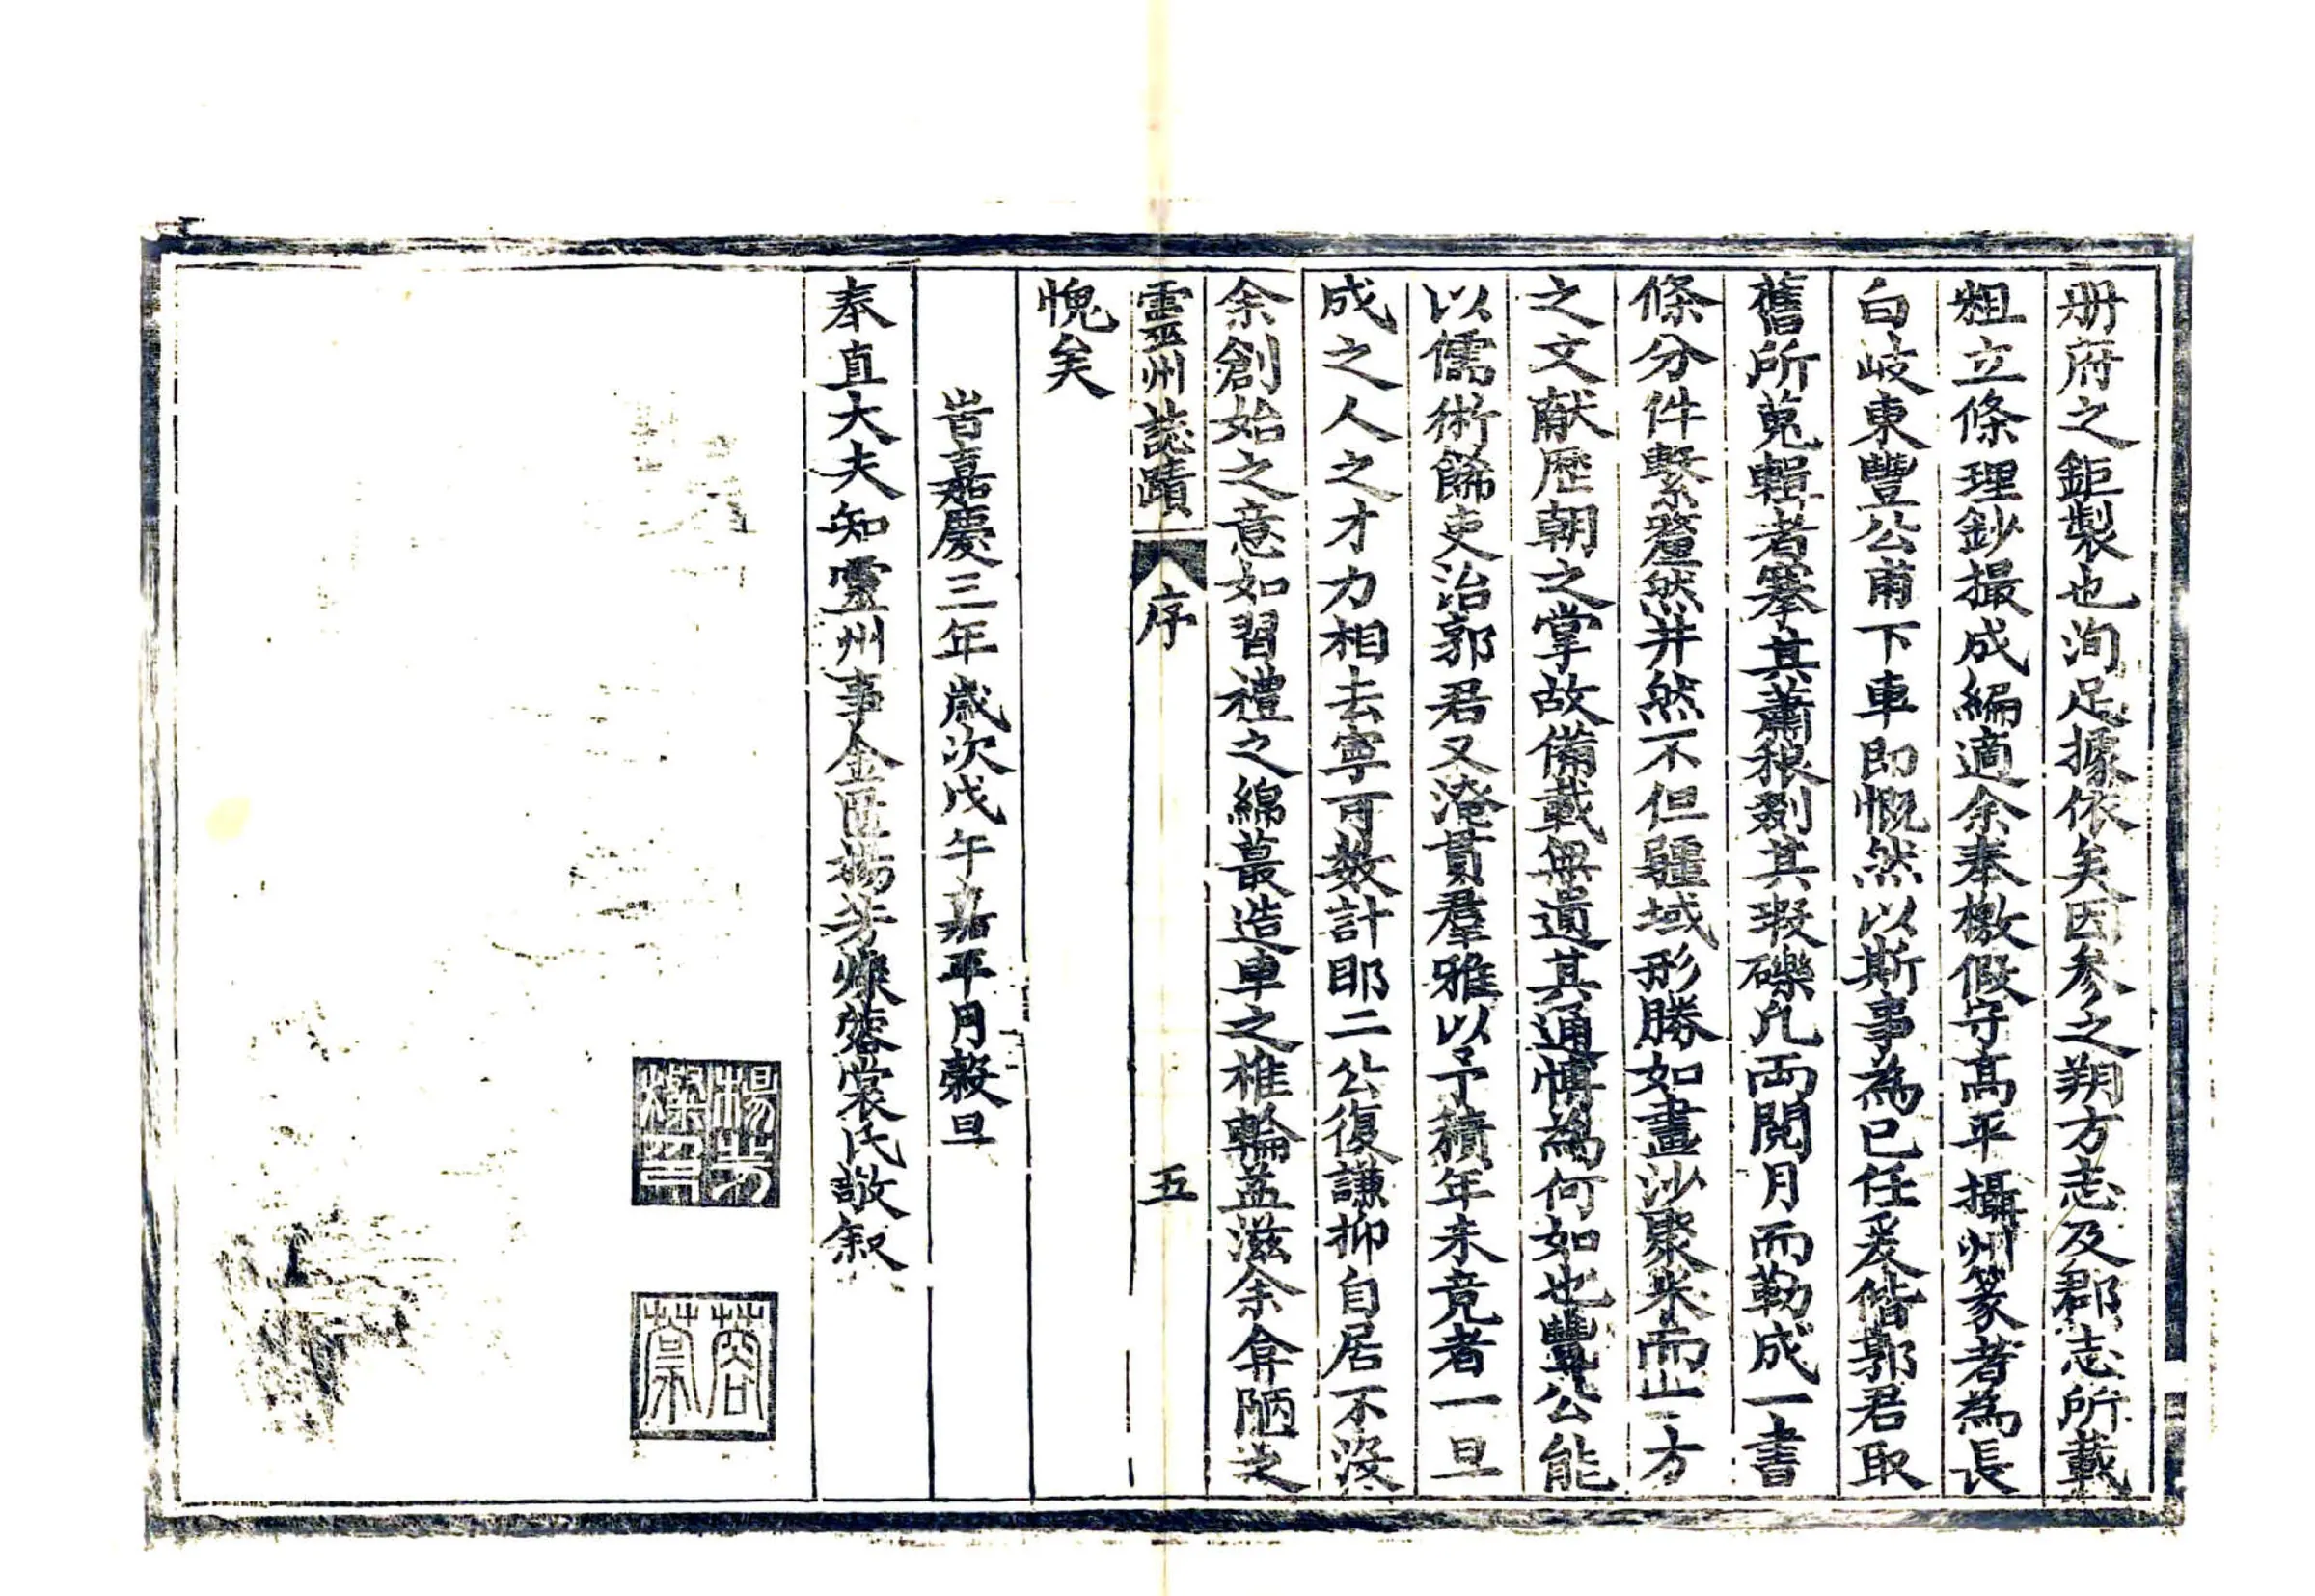 册府之鉅製也洵足據依矣因参之朔方志及郡志所載
粗立條理鈔撮成編適余奉檄假守高平攝州篆者為長
白岐東豐公甫下車即慨然以斯事為已任爰偕郭君取
舊所蒐輯者搴其蕭稂剟其瑕礫凡両閱月而勒成一書
條分件繫釐然井然不但疆域形勝如畫沙聚米而止一方
之文献歷朝之掌故備載無遺其通博為何如也豐公能
以儒術餙吏治郭君又淹貫羣雅以予積年未竟者一旦
成之人之才力相去寧可数計耶二公復謙抑自居不没
余創始之意如習禮之綿蕞造車之椎輪益滋余弇陋之
靈州誌蹟 序 五
愧矣
旹嘉慶三年歲次戊午嘉平月榖旦
奉直大夫知靈州事金匱楊芳燦蓉裳氏敬叙
楊芳燦印
蓉裳